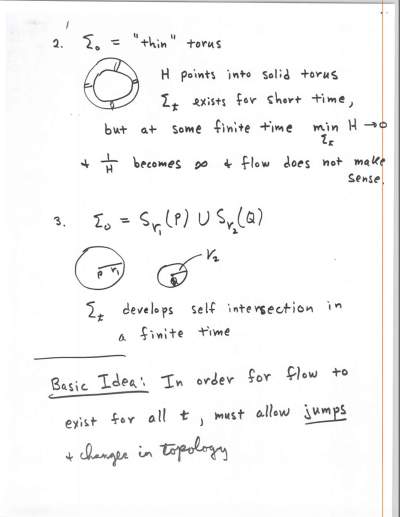 2. Σ₀ = "thin" torus
H points into solid torus
Σₜ exists for short time,
but at some finite time min H → 0
Σₜ
+ 1/H becomes ∞ + flow does not make
sense.
3. Σ₀ = S_r₁(P) ∪ S_r₂(Q)
P r₁ Q r₂
Σₜ develops self intersection in
a finite time
Basic Idea: In order for flow to
exist for all t, must allow jumps
+ changes in topology